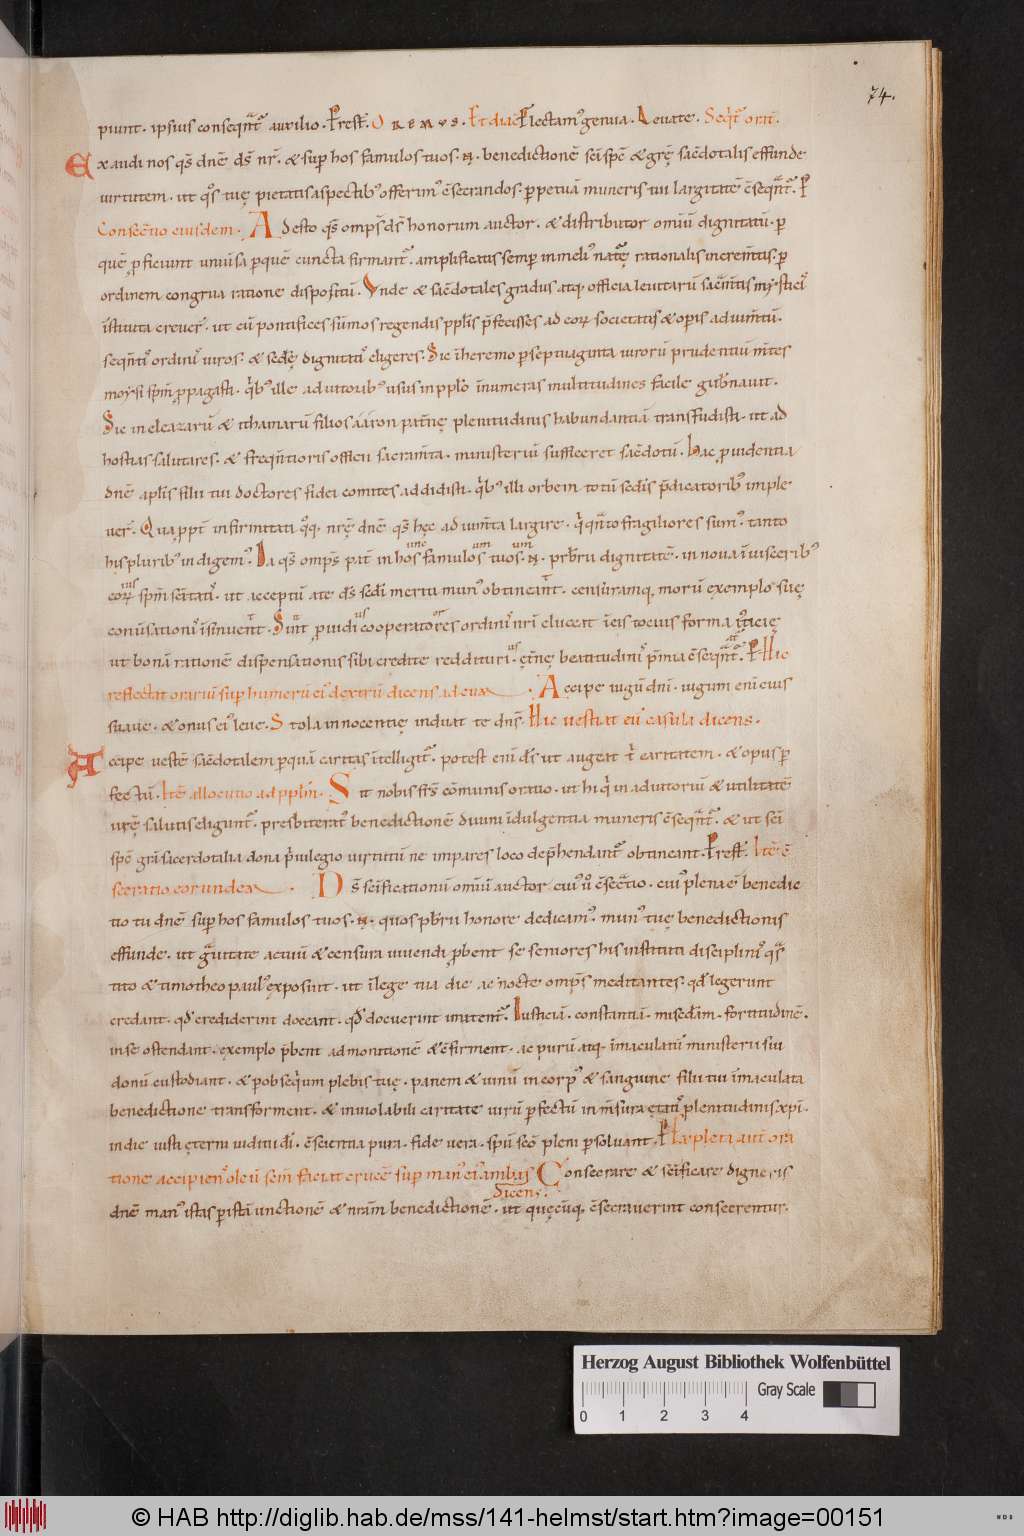 74.
piunt. ipsius conseqnt᷒ auxilio. Prest. OREMUS. Et diac Flectam᷒ genua. Leuate. Seqt᷒ orat̄.
Exaudi nos qs̄ dnē ds̄ nr̄. & sup hos famulos tuos. N. benedictionē sc̄i sp̄c & grē sacdotalis effunde
uirtutem. ut qs tuę pietatis aspectib᷒ offerim᷒ c̄secrandos. ꝑpetuā muneris tui largitatē c̄seqnt᷒. P
Consec̄tio eiusdem. Adesto qs̄ omps̄ ds̄ honorum auctor. & distributor omiū dignitatū. ꝑ
quē ꝓficiunt uniūsa ꝑquē cuncta firmant᷒. amplificatis semꝑ in meli᷒ naturę rationalis incrementis. ꝑ
ordinem congrua ratione dispositū. Vnde & sacdotales gradus atq; officia leuitarū sacm̄tis mysticis
īstituta creuer̄. ut cū pontifices sūmos regendis pplis p̄fecisses ad eoꝝ societatis & opis adium̄tū.
seqntis ordinis uiros. & sedę dignitatis eligeres. Sic ī heremo ꝑ septuaginta uirorū prudentiū m̄tes
moysi spm̄ ꝓpagasti. qb᷒ ille adiutorib᷒ usus in pplo īnumeras multitudines facile gub̄nauit.
Sic in eleazarū & ithamarū filios aaron pat̄nę plenitudinis habundantiā transfudisti. ut ad
hostias salutares. & freqntioris officii sacram̄ta. ministeriū sufficeret sacdotū. Hac ꝓuidentia
dnē aplis filii tui doctores fidei comites addidisti. qb᷒ illi orbem totū sedis p̄dicatorib᷒ imple
uer̄. Quappt̄ infirmitati qq. nrę dnē qs̄ hęc adium̄ta largire. qi qnto fragiliores sum᷒. tanto
his plurib᷒ indigem᷒. Da qs̄ omps̄ pat̄ in hos famulos tuos. N. prb̄rii dignitatē. innoua ī uiscerib᷒
eoꝝ spm̄ sc̄itatis. ut acceptū a te ds̄ scdi meriti mun᷒ obtineant. censuramq; morū exemplo suę
conūsationis īsinuent. Sint ꝓuidi cooperatores ordinis nr̄i eluceat ī eis tocius forma iusticię
ut bonā rationē dispensationis sibi credite reddituri. et̄nę beatitudinis p̄mia c̄seqnt᷒. P. Hic
reflectat orariū sup humerū ei᷒ dextrū dicens ad eum. Accipe iugū dnī. iugum eni eius
suaue. & onus ei᷒ leue. Stola innocentię induat te dns̄. Hic uestiat eū casula dicens.
Accipe uestē sacdotalem ꝑquā caritas ītelligit᷒. potest eni ds̄ ut augeat t̄ caritatem. & opus ꝑ
fectū. Itē allocutio ad pplm̄. Sit nobis frs̄ cōmunis oratio. ut hi qi in adiutoriū & utilitatē
urę salutis eligunt᷒. presbiterat᷒ benedictionē diuini īdulgentia muneris c̄seqnt᷒. & ut sc̄i
sp̄c grā sacerdotalia dona p̄uilegio uirtutū ne impares loco dep̄hendant᷒ obtineant. Prest. Itē c̄
secratio eorundem. Ds̄ sc̄ificationū omiū auctor cui᷒ ū c̄sectio. cui᷒ plena ē benedic
tio tu dnē sup hos famulos tuos. N. quos pb̄rii honore dedicam᷒. mun᷒ tuę benedictionis
effunde. ut guitate actuū & censura uiuendi ꝓbent se seniores his instituti disciplinis qs
tito & timotheo paul᷒ exposuit. ut ī lege tua die ac nocte omps̄ meditantes. qd legerint
credant. qd crediderint doceant. qd docuerint imitent᷒. Iusticiā. constantiā. mise̅dām. fortitudinē.
in se ostendant. exemplo p̄beant admonitionē & c̄firment. ac purū atq; īmaculatū ministerii sui
donū custodiant. & ꝑ obseqium plebis tuę. panem & uinū in corp᷒ & sanguine filii tui īmaculata
benedictione transforment. & inuiolabili caritate uirū ꝑfectū in m̄sura ętatis plenitudinis xp̄i.
in die iusti ęterni iudicii di. c̄scientia pura. fide uera. spū sc̄o pleni ꝑsoluant. P Expleta aut̄ ora
tione accipiens oleū sc̄m̄ faciat crucē sup man᷒ ei᷒ ambas dicens. Consecrare & sc̄ificare digneris
dnē man᷒ istas ꝑ istā unctionē & nrām benedictionē. ut quęcūq; c̄secrauerint consecrentur.
Herzog August Bibliothek Wolfenbüttel
Gray Scale
0 1 2 3 4
© HAB http://diglib.hab.de/mss/141-helmst/start.htm?image=00151